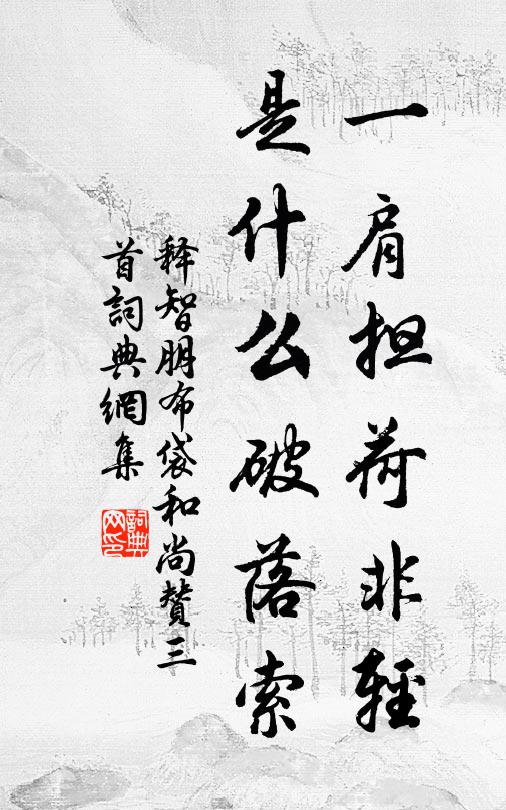 一肩担荷非轻
是什么破落索
释智朋布袋和尚赞三
首詞典網集
詞典
网印